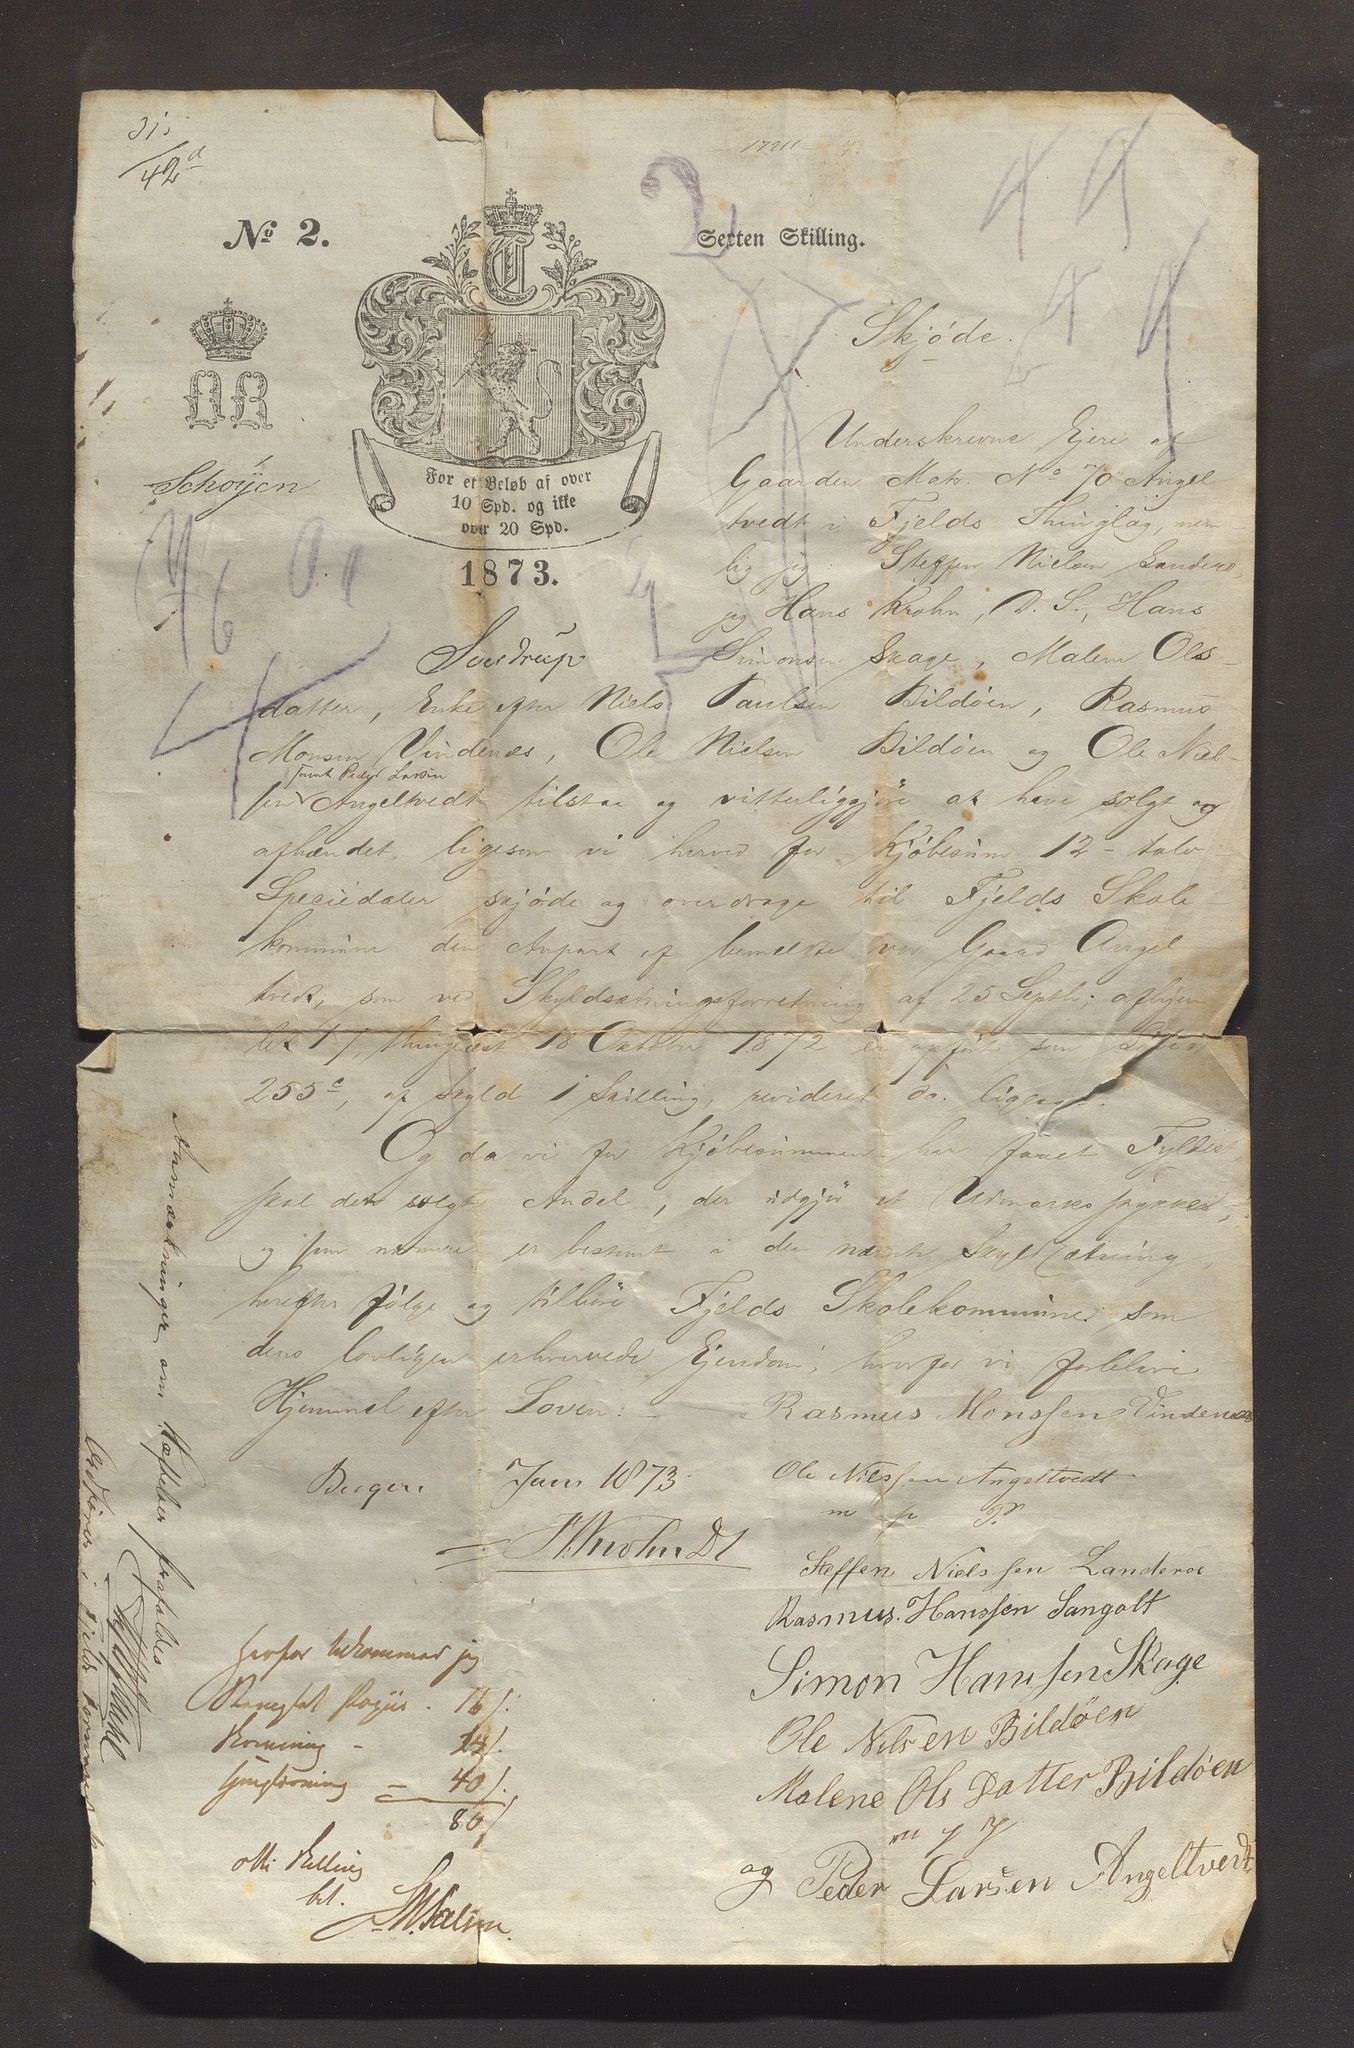 31s
42d
No 2.
Sexten Skilling.
Schøyen
For et Beløb af over
10 Spd. og ikke
over 20 Spd.
1873.
Sverdrup
Skjøde.
Underskrevne Ejere af
Gaarden Matr. No 70 Angel
tvedt i Fjelds Thinglag, nem
lig jeg: Steffen Nielsen Landeroe,
jeg Hans Krohn, D. S., Hans
Simonsen Skage, Malene Ols
datter, Enke efter Niels Paulsen Bildøen, Rasmus
Monsen Vindenes, Ole Nielsen Bildøen og Ole Niel-
samt Peder Larsen
sen Angeltvedt tilstaa og vitterliggjøre at have solgt og
afhændet, ligesom vi herved for Kjøbesum 12 - tolv
Speciedaler skjøde og overdrage til Fjelds Skole
kommune den Anpart af bemeldte vor Gaard Angel
tvedt, som ved Skyldsætningsforretning af 25 Septbr, afhjem
let thinglæst 18 Oktober 1872 er opført som
255c, af Skyld 1 Skilling, revideret do. ligesaa.
Og da vi for Kjøbesummen har faaet Fyldest,
skal den solgte Andel, der udgjør et Udmarksstykke,
og som nærmere er bestemt i den nævnte Skyldsætning,
herefter følge og tilhøre Fjelds Skolekommune som
dens lovligen erhvervede Ejendom, hvorfor vi forblive
Hjemmel efter Loven.
Bergen Juni 1873
H. Krohn DS
Rasmus Monssen Vindenes
Ole Nilssen Angeltvedt
m p P
Steffen Nielssen Landeroe
Rasmus Hanssen Sangolt
Simon Hanssen Skage
Ole Nilsen Bildøen
Malene Ols Datter Bildøen
og Peder Larsen Angeltvedt
Herfor bekommer jeg
Beregnet Papir - 16 s.
Skrivning - 24 s.
Thinglæsning - 40 s.
80 s
otti Skilling
bet.
Anmærkninger om Hæftelser frafaldes
Udføres i